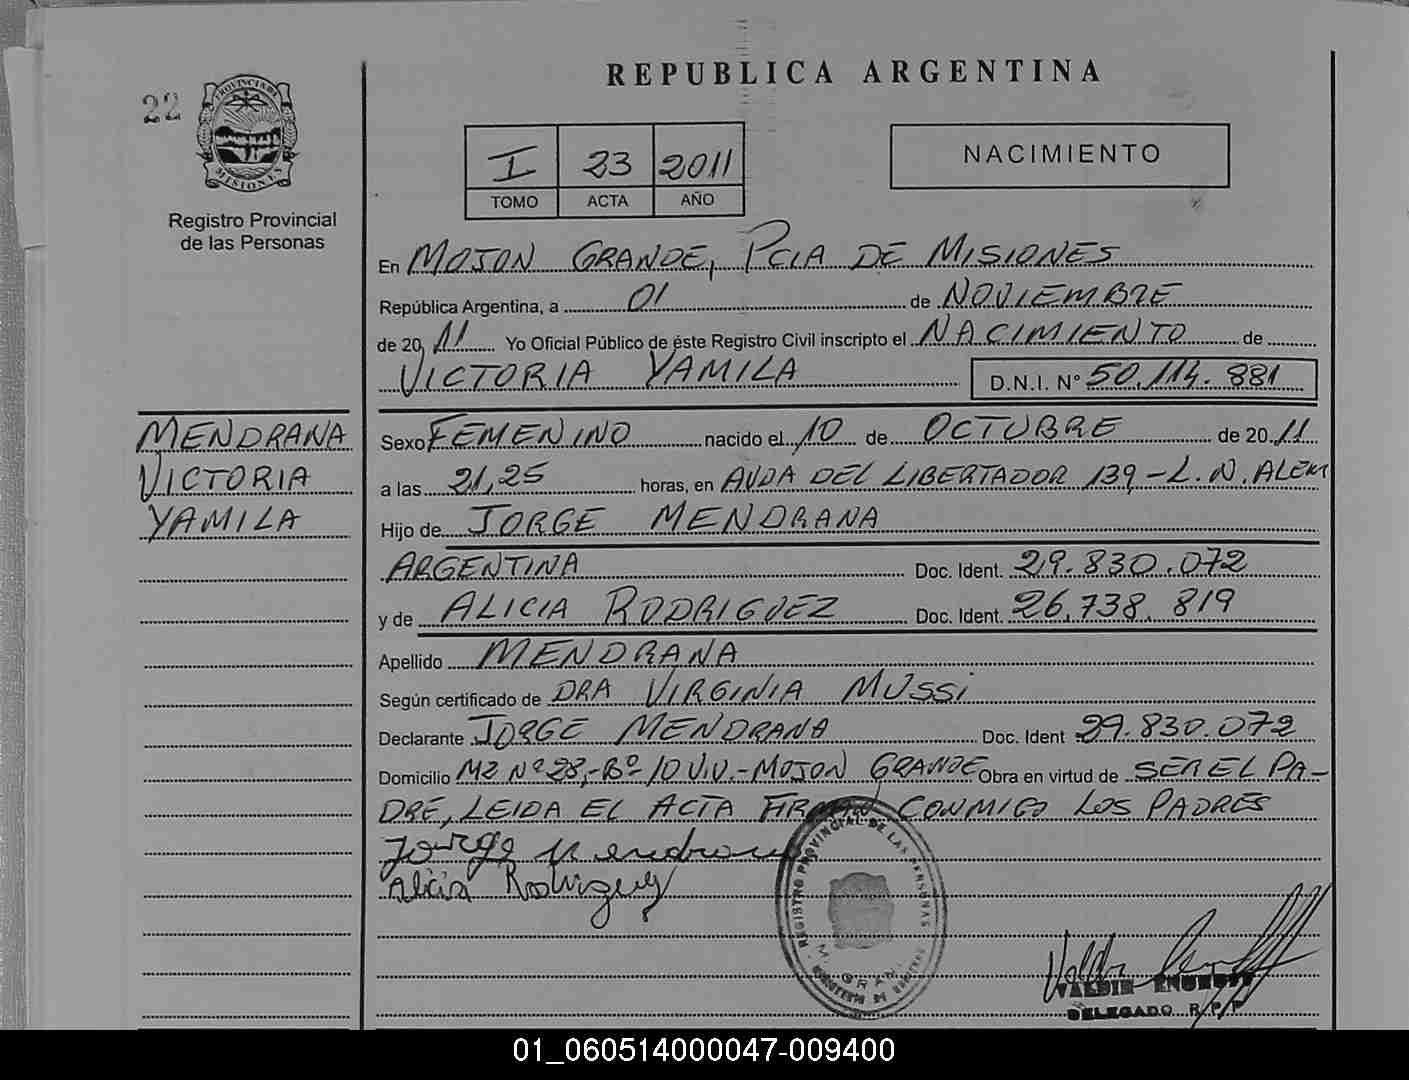 REPUBLICA ARGENTINA
22
PROVINCIA DE MISIONES
Registro Provincial
de las Personas
I 23 2011
TOMO ACTA AÑO
NACIMIENTO
En MOJON GRANDE, PCIA DE MISIONES
República Argentina, a 01 de NOVIEMBRE
de 20 11 Yo Oficial Público de éste Registro Civil inscripto el NACIMIENTO de
VICTORIA YAMILA D.N.I. N° 50.114.881
MENDRANA
VICTORIA
YAMILA
Sexo FEMENINO nacido el 10 de OCTUBRE de 20 11
a las 21,25 horas, en AVDA DEL LIBERTADOR 139,-L.N.ALEM
Hijo de JORGE MENDRANA
ARGENTINA Doc. Ident. 29.830.072
y de ALICIA RODRIGUEZ Doc. Ident. 26.738.819
Apellido MENDRANA
Según certificado de DRA VIRGINIA MUSSI
Declarante JORGE MENDRANA Doc. Ident 29.830.072
Domicilio MZ Nº 28,-Bº 10 V.V.-MOJON GRANDE Obra en virtud de SER EL PA-
DRE, LEIDA EL ACTA FIRMAN CONMIGO LOS PADRES
Jorge Mendrana
Alicia Rodriguez
REGISTRO PROVINCIAL DE LAS PERSONAS
M. GRAN
VALDIR
DELEGADO R.P.P
01_060514000047-009400